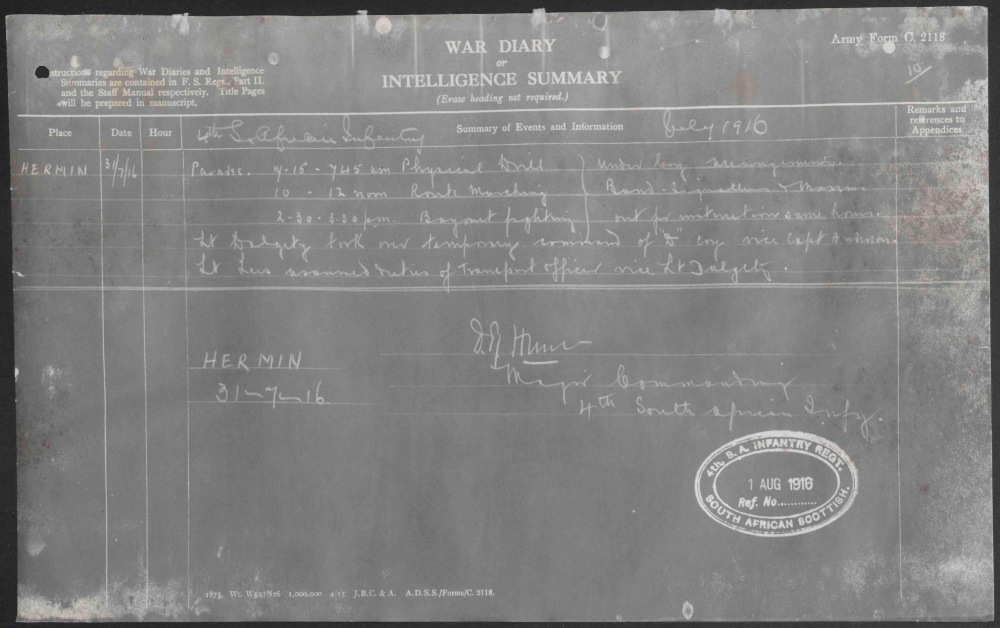 WAR DIARY
or
INTELLIGENCE SUMMARY
(Erase heading not required.)
Army Form C. 2118
10
Instructions regarding War Diaries and Intelligence
Summaries are contained in F. S. Regs., Part II.
and the Staff Manual respectively. Title Pages
will be prepared in manuscript.
Place Date Hour Summary of Events and Information Remarks and references to Appendices
4th S. African Infantry July 1916
HERMIN 31/7/16 Parades. 7-15 - 7.45 am Physical Drill } under Coy arrangements.
10 - 12 noon Route Marching } Band - Signallers &
2-30 - 3.30 pm. Bayonet fighting } out for instruction same hours.
Lt Dalgety took over temporary command of "D" coy vice Capt Anderson.
Lt assumed duties of Transport Officer vice Lt Dalgety.
HERMIN
31-7-16
Major Commanding
4th South African Infy.
4th. S. A. INFANTRY REGT.
1 AUG 1916
Ref. No............
SOUTH AFRICAN SCOTTISH.
1875 Wt. W593/826 1,000,000 4/15 J.B.C. & A. A.D.S.S./Forms/C. 2118.